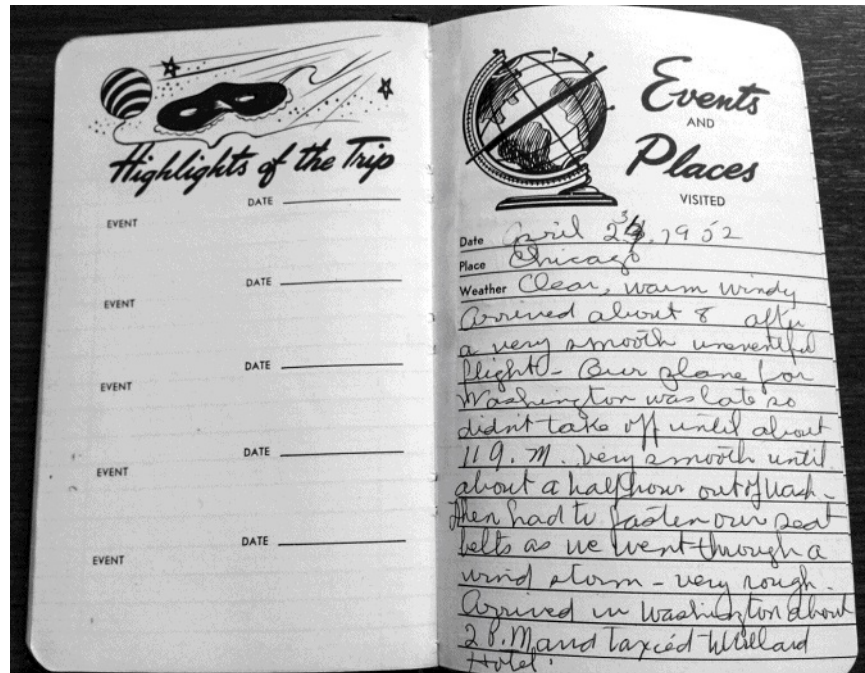 Highlights of the Trip
DATE
EVENT
DATE
EVENT
DATE
EVENT
DATE
EVENT
DATE
EVENT
Events
AND
Places
VISITED
Date April 23, 1952
Place Chicago
Weather Clear, warm windy
Arrived about 8 after
a very smooth uneventful
flight - Our plane for
Washington was late so
didn't take off until about
11 A.M. very smooth until
about a half hour out of Wash -
then had to fasten our seat
belts as we went through a
wind storm - very rough.
Arrived in Washington about
2 P.M and taxied Willard
Hotel.